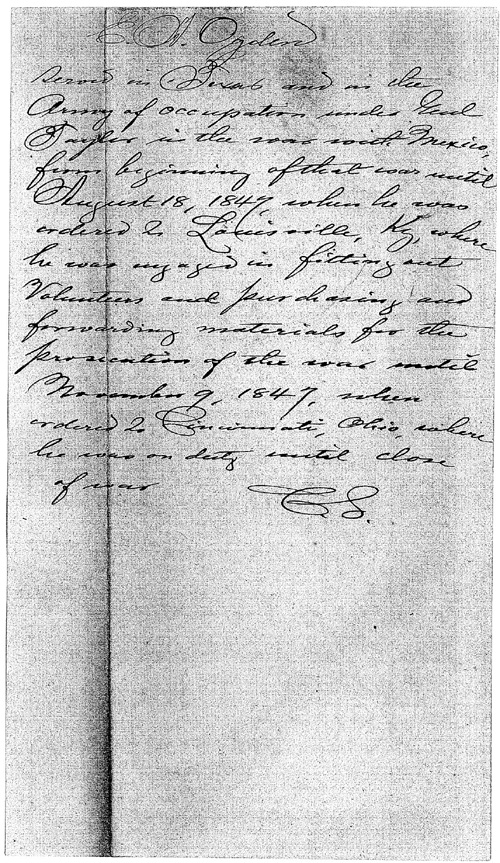 E. A. Ogden
served in Texas and in the
Army of occupation under Genl
Taylor in the war with Mexico,
from beginning of that war until
August 18, 1847, when he was
ordered to Louisville, Ky, where
he was engaged in fitting out
Volunteers and purchasing and
forwarding materials for the
prosecution of the war until
November 9, 1847, when
ordered to Cincinnati, Ohio, where
he was on duty until close
of war
C. S.